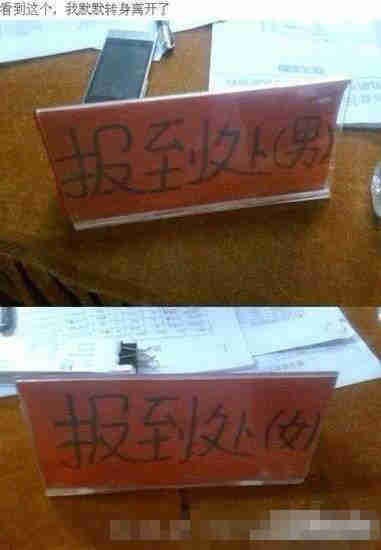 看到这个，我默默转身离开了
报到处(男)
报到处(女)